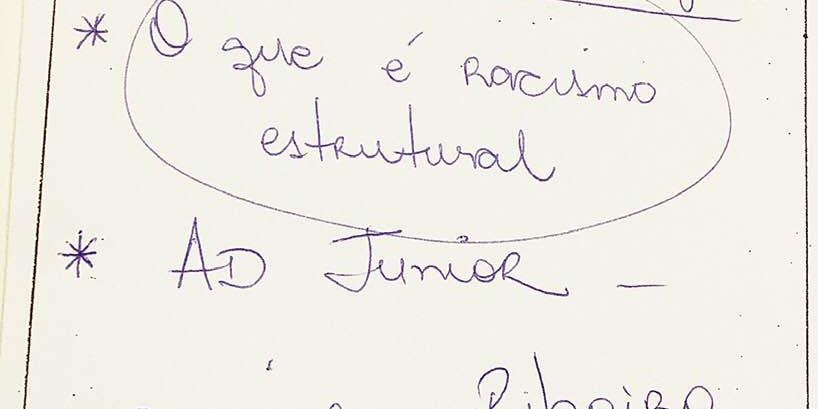 * O que é racismo
estrutural
* AD Junior -
Ribeiro